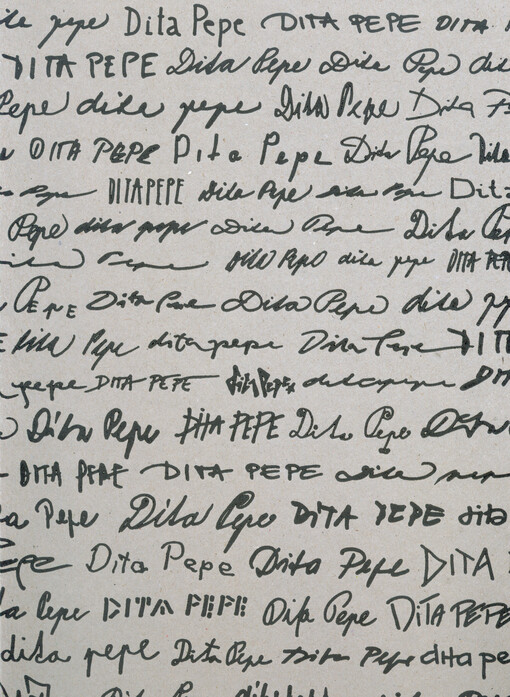 pepe Dita Pepe DITA PEPE DITA
DITA PEPE Dita Pepe Dita Pepe dit
Pepe dita pepe Dita Pepe Dita P
DITA PEPE Dita Pepe Dita Pepe Dita
Pepe DITA PEPE Dita Pepe Dita Pepe Dita
Pepe dita pepe Dita Pepe Dita Pe
Pepe Dita Pepo dita pepe DITA PEPE
PEPE Dita Pepe Dita Pepe dita pe
Dita Pepe dita pepe Dita Pepe DIT
pepe DITA PEPE Dita Pepe dita pepe DIT
Dita Pepe DITA PEPE Dita Pepe Dita
DITA PEPE DITA PEPE dita pepe
a Pepe Dita Pepe DITA PEPE dita
epe Dita Pepe Dita Pepe DITA
a Pepe DITA PEPE Dita Pepe DITA PEPE
dita pepe Dita Pepe Dita Pepe dita pe